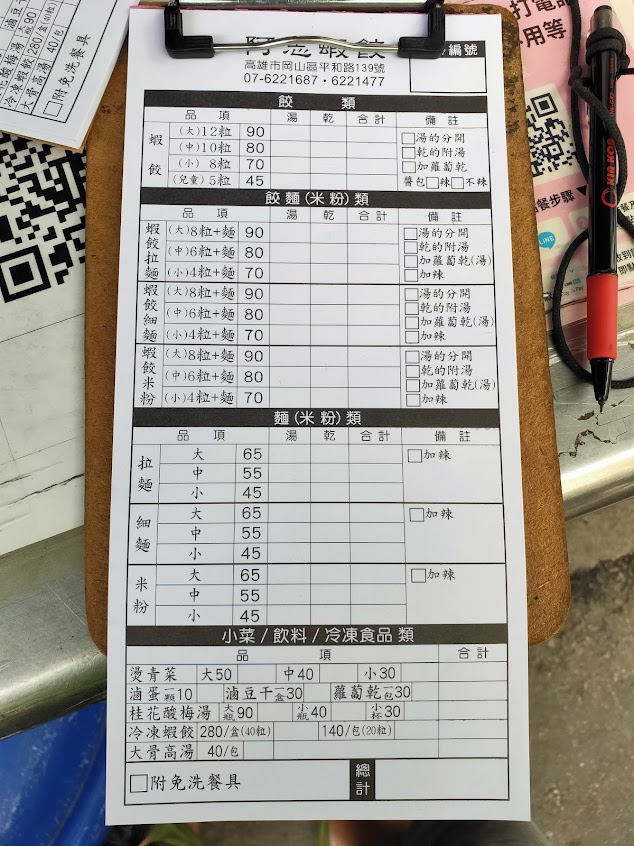 打電
用等
大骨高湯 40/包
附免洗餐具
蝦餃
編號
高雄市岡山區平和路139號
07-6221687・6221477
餃 類
品 項 湯 乾 合計 備註
蝦餃
(大)12粒 90 □湯的分開
(中)10粒 80 □乾的附湯
(小) 8粒 70 □加蘿蔔乾
(兒童)5粒 45 醬包□辣□不辣
餃麵(米粉)類
品 項 湯 乾 合計 備註
蝦餃拉麵
(大)8粒+麵 90 □湯的分開
(中)6粒+麵 80 □乾的附湯
□加蘿蔔乾(湯)
(小)4粒+麵 70 □加辣
蝦餃細麵
(大)8粒+麵 90 □湯的分開
(中)6粒+麵 80 □乾的附湯
□加蘿蔔乾(湯)
(小)4粒+麵 70 □加辣
蝦餃米粉
(大)8粒+麵 90 □湯的分開
(中)6粒+麵 80 □乾的附湯
□加蘿蔔乾(湯)
(小)4粒+麵 70 □加辣
麵(米粉)類
品 項 湯 乾 合計 備註
拉麵
大 65 □加辣
中 55
小 45
細麵
大 65 □加辣
中 55
小 45
米粉
大 65 □加辣
中 55
小 45
小菜/飲料/冷凍食品類
品 項 合計
燙青菜 大50 中40 小30
滷蛋一顆10 滷豆干一盒30 蘿蔔乾一包30
桂花酸梅湯 大瓶90 小瓶40 小杯30
冷凍蝦餃 280/盒(40粒) 140/包(20粒)
大骨高湯 40/包
□附免洗餐具 總計
餐步驟
LINE